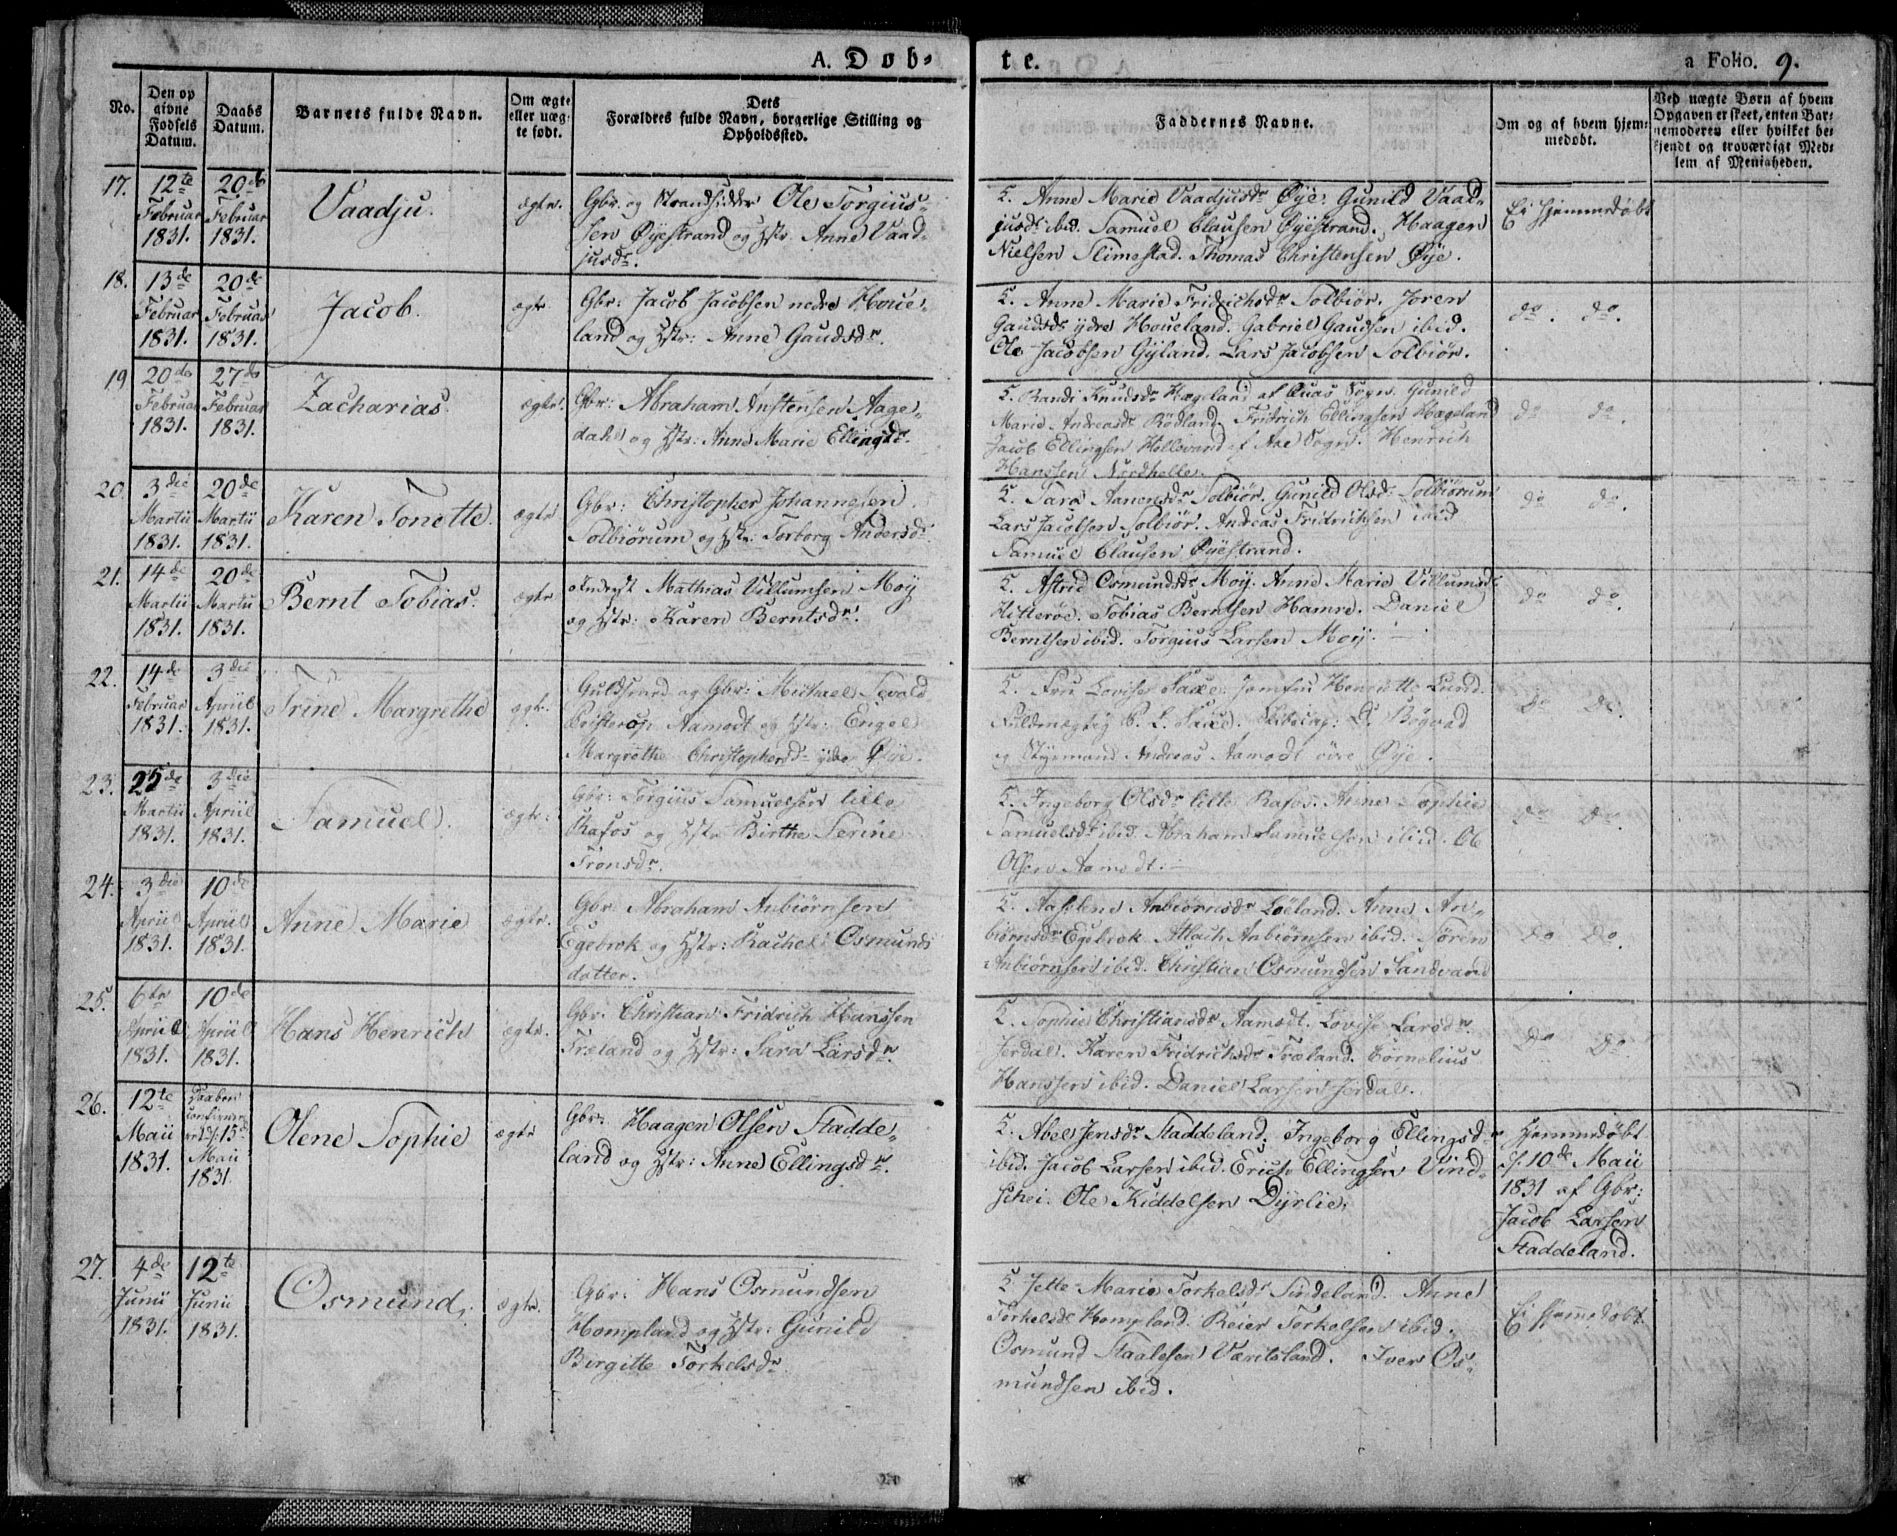 A. Døb-
te.
a Folio. 9.
No.
Den op
givne
Fødsels
Datum.
Daabs
Datum.
Barnets fulde Navn.
Om ægte
eller uæg-
te født.
Dets
Forældres fulde Navn, borgerlige Stilling og
Opholdssted.
Faddernes Navne.
Om og af hvem hjem-
medøbt.
Ved uægte Børn af hvem
Opgaven er skeet, enten Bar-
nemoderen eller hvilket be-
kjendt og troværdigt Med-
lem af Menigheden.
17.
12te
Februar
1831.
20de
Februar
1831.
Vaadju.
ægte.
Gbr. og Strandsidder Ole Torgius-
sen Øyestrand og Hstr. Anne Vaad-
jusdr.
F. Anne Marie Vaadjusdr Øye. Gunild Vaad-
jusdr ibid. Samuel Clausen Øyestrand. Haagen
Nielsen Slimestad. Thomas Christensen Øye.
Ei hjemmedøbt
18.
13de
Februar
1831.
20de
Februar
1831.
Jacob.
ægte
Gbr: Jacob Jacobsen nedre Houe-
land og Hstr: Anne Gaudsdr.
F. Anne Marie Fridrichsdr Solbiør. Joren
Gaudsdr ydre Houeland. Gabriel Gaudsen ibid.
Ole Jacobsen Gyland. Lars Jacobsen Solbiør.
do. do.
19
20de
Februar
1831.
27de
Februar
1831.
Zacharias.
ægte.
Gbr: Abraham Anstensen Aage-
dal og Hstr: Anne Marie Ellingsdr.
F. Randi Knudsdr Hægeland af Quas Sogn. Gunild
Marie Andreasdr Rødland. Fridrich Ellingsen Hægeland
Jacob Ellingsen Hellevand af Aae Sogn. Henrich
Hanssen Nordhelle.
do do.
20.
3die
Martii
1831.
20de
Martii
1831.
Karen Tonette.
ægte
Gbr: Christopher Johannesen
Solbiørum og Hstr: Torborg Andersdr.
F. Sara Aanensdr Solbiør. Gunild Olsdr Solbiørum
Lars Jacobsen Solbiør. Andreas Fridrichsen ibid
Samuel Clausen Øyestrand.
do do.
21.
14de
Martii
1831.
20de
Martii
1831.
Bernt Tobias.
ægte
Mathias Villumsen Moy
og Hstr: Karen Berntsdr.
F. Astrid Osmundsdr Moy. Anne Marie Villumsdr
Hitterøe. Tobias Berntsen Hamre. Daniel
Berntsen ibid. Torgius Larsen Moy.
do do.
22.
14de
Februar
1831.
3die
Apriil
1831.
Trine Margrethe
ægte.
Guldsmed og Gbr: Michael Sevald
Aamodt og Hstr: Engel
Margrethe Christophersdr ydre Øye.
F. Fru Lovise Saxe. Jomfru Henriette Lund.
Fuldmægtig P. L. Saxe. D. Bøgvad
og Styrmand Andreas Aamodt øvre Øye.
Do Do.
23.
25de
Martii
1831.
3die
Apriil
1831.
Samuel.
ægte:
Gbr: Torgius Samuelsen lille
Rafos og Hstr Birthe Serine
Tronsdr.
F. Ingeborg Olsdr lille Rafos. Anne Sophie
Samuelsdr ibid. Abraham Samuelsen ibid. Ole
Olsen Aamodt.
Do Do.
24.
3die
Apriil
1831.
10de
Apriil
1831.
Anne Marie
ægte.
Gbr Abraham Anbiørnsen
Egebrok og Hstr: Rachel Osmunds
datter.
F. Aaselene Anbiørnsdr Løeland. Anne An-
biørnsdr Egebrok. Atlach Anbiørnsen ibid. Søren
Anbiørnsen ibid. Christian Osmundsen Sandvand
Do Do.
25.
6te
Apriil
1831.
10de
Apriil
1831.
Hans Henrich
ægte.
Gbr. Christian Fridrich Hanssen
Træland og Hstr: Sara Larsdr.
F. Sophie Christiansdr Aamodt. Lovise Larsdr.
Jerdal. Karen Fridrichsdr Træland. Cornelius
Hanssen ibid. Daniel Larsen Jerdal.
Do Do
26.
12te
Maii
1831.
Daaben
confirme-
ret d. 15de
Maii
1831
Olene Sophie
ægte
Gbr: Haagen Olsen Stadde-
land og Hstr: Anne Ellingsdr.
F. Abel Jensdr Staddeland. Ingeborg Ellingsdr
ibid. Jacob Larsen ibid. Erich Ellingsen Vind-
schei. Ole Kiddelsen Dyrlie.
Hjemmedøbt
d. 10de Maii
1831 af Gbr:
Jacob Larsen
Staddeland.
27.
4de
Junii
1831.
12te
Junii
1831.
Osmund.
ægte.
Gbr: Hans Osmundsen
Hompland og Hstr: Gunild
Birgitte Torkelsdr.
F. Jette Marie Torkelsdr Sindeland. Anne
Torkelsdr Hompland. Reier Torkelsen ibid.
Osmund StaalesenVæritsland. Iver Os-
mundsen ibid.
Ei hjemmedøbt